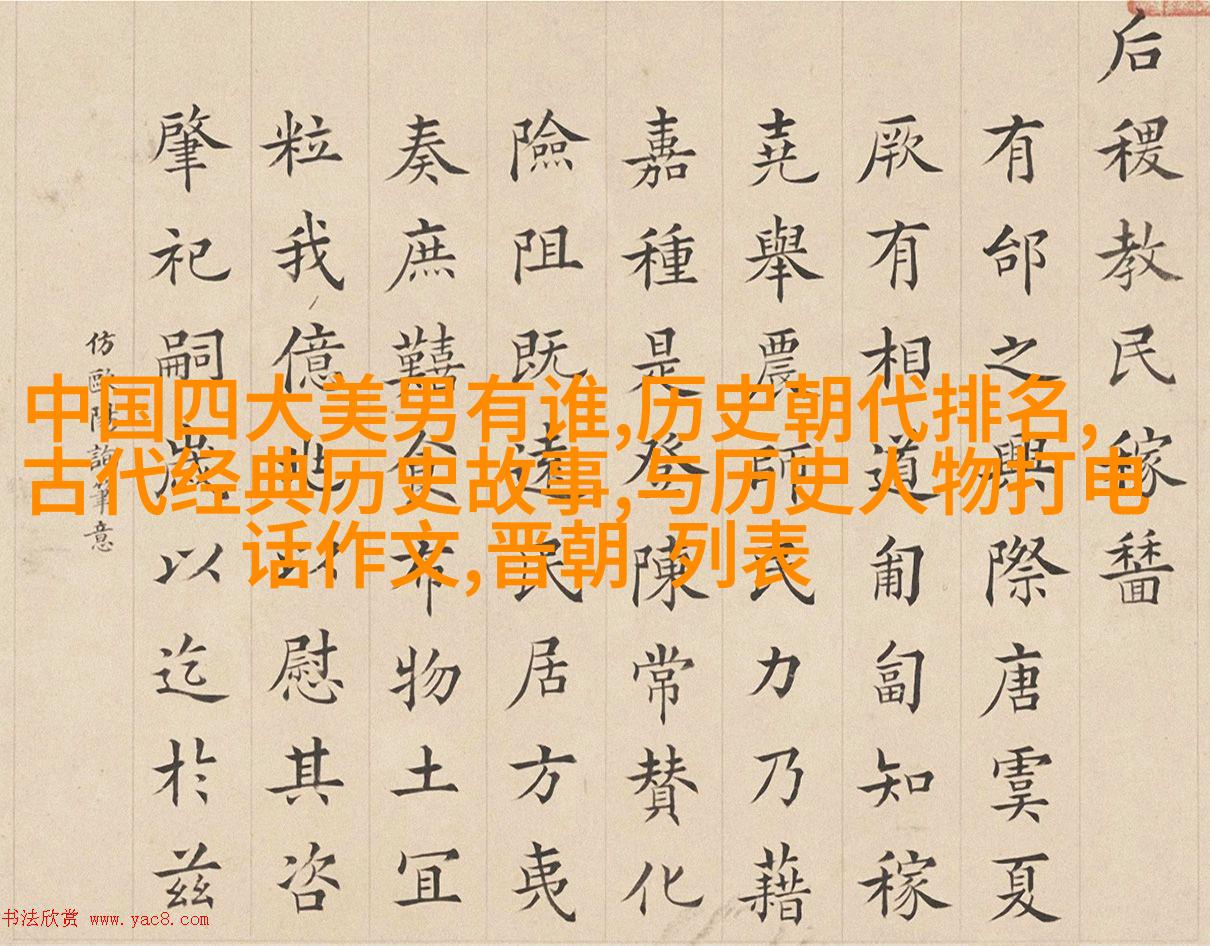 后稷教民稼穡
有邰之興際唐虞夏
厥有相道匍匐知稼
堯舉農師民力乃藉
嘉種是登陳常贊化
險阻既遠民居方夷
奏庶艱食布物土宜
粒我億慰其咨
肇祀嗣歲以迄於茲
仿歐陽詢筆意
中国四大美男有谁,历史朝代排名,
古代经典历史故事,与历史人物打电
话作文,晋朝 列表
书法欣赏 www.yac8.com